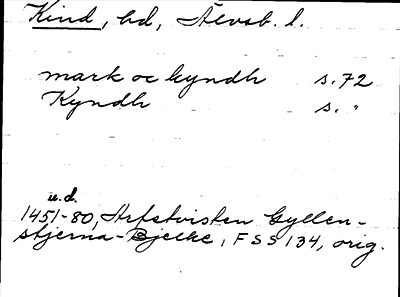 Kind, hd, Älvsb. l.
mark oc kyndh s. 72
Kyndh s. "
u.d.
1451-80, Arfstvisten Gyllen-
stjerna-Bjelke, FSS 134, orig.